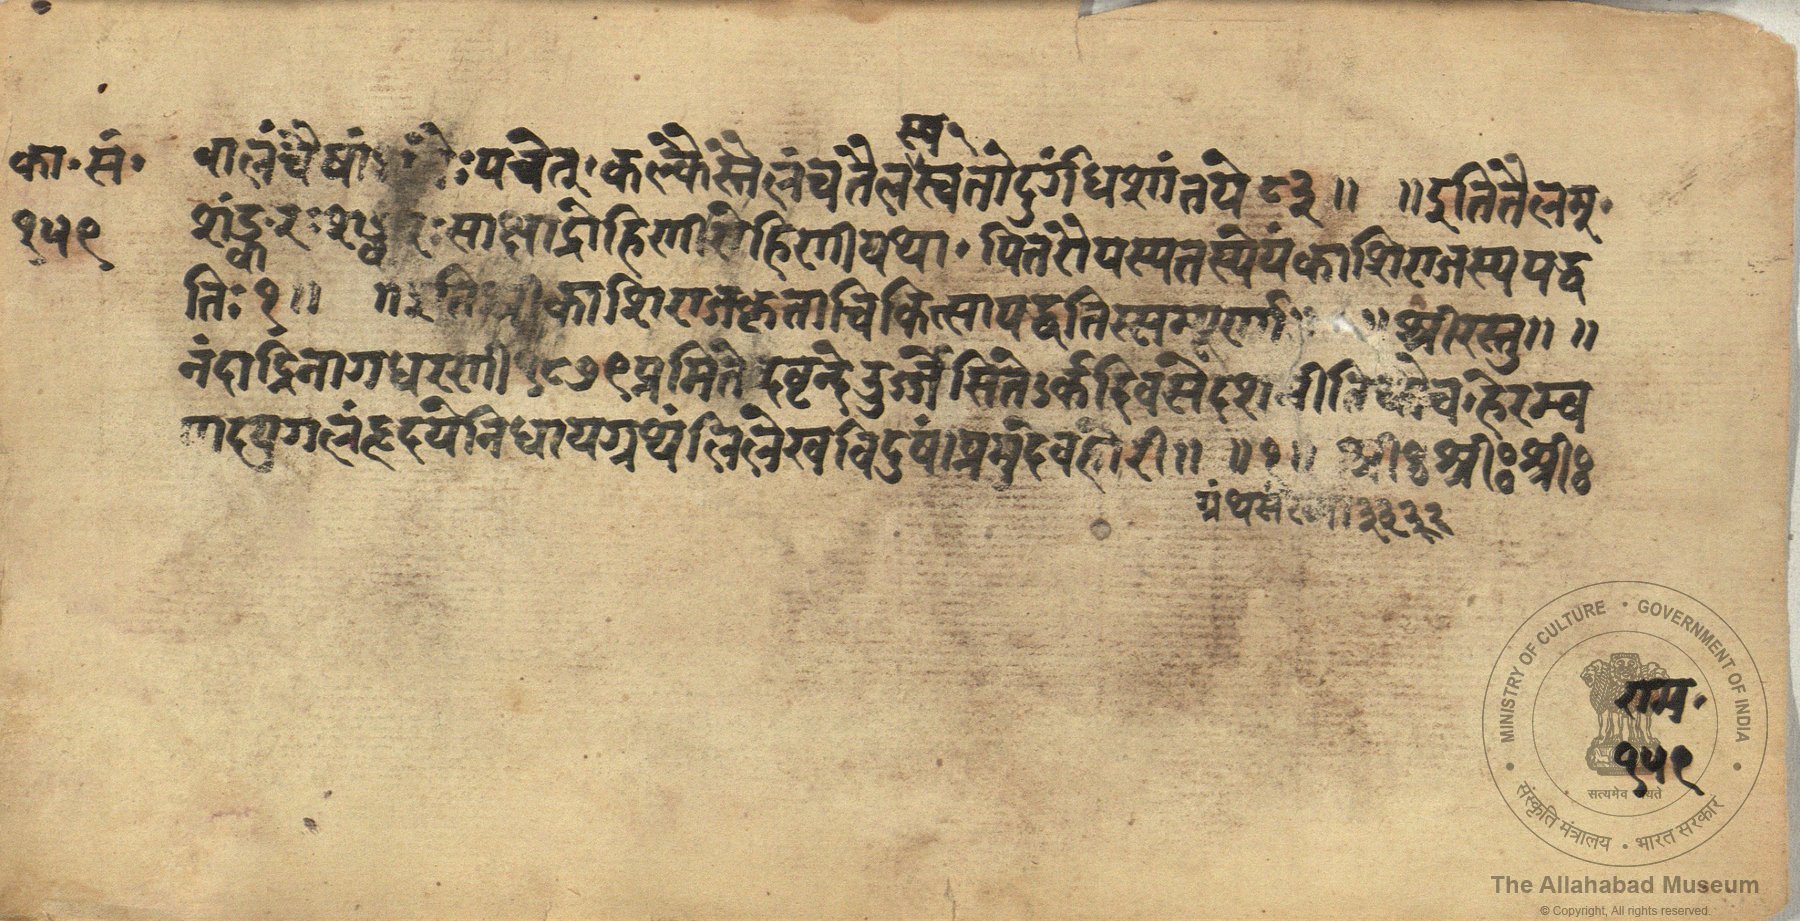 का॰ सं॰
१५९
स्य॰
वालंचैषां पचेत्॰ कल्कैस्तैलंचतैलस्वेतोदुर्गंधिशांतये ८३ ॥ ॥ इतितैलम्॰
शंङ्करः साक्षाद्रोहिणीरोहिणीयथा॰ पितरौयस्यतस्येयंकाशिराजस्यपद्ध
तिः १ ॥ इति श्रीकाशिराजकृताचिकित्सापद्धतिस्सम्पूर्णा ॥ श्रीरस्तु ॥ ॥
नंदाद्रिनागधरणी १८७९ प्रमितेब्दवृन्देऽर्ज्जेसितेऽर्कदिवसेदश मीतिथौच॰ हेरम्ब
पादयुगलंहृदयेनिधायग्रथंलिलेखविदुषां ॥ ॥ १ ॥ श्रीः श्रीः श्रीः
ग्रंथसंख्या ३३२२
राम॰
१५९
MINISTRY OF CULTURE • GOVERNMENT OF INDIA
सत्यमेव जयते
संस्कृति मंत्रालय • भारत सरकार
The Allahabad Museum
© Copyright, All rights reserved.